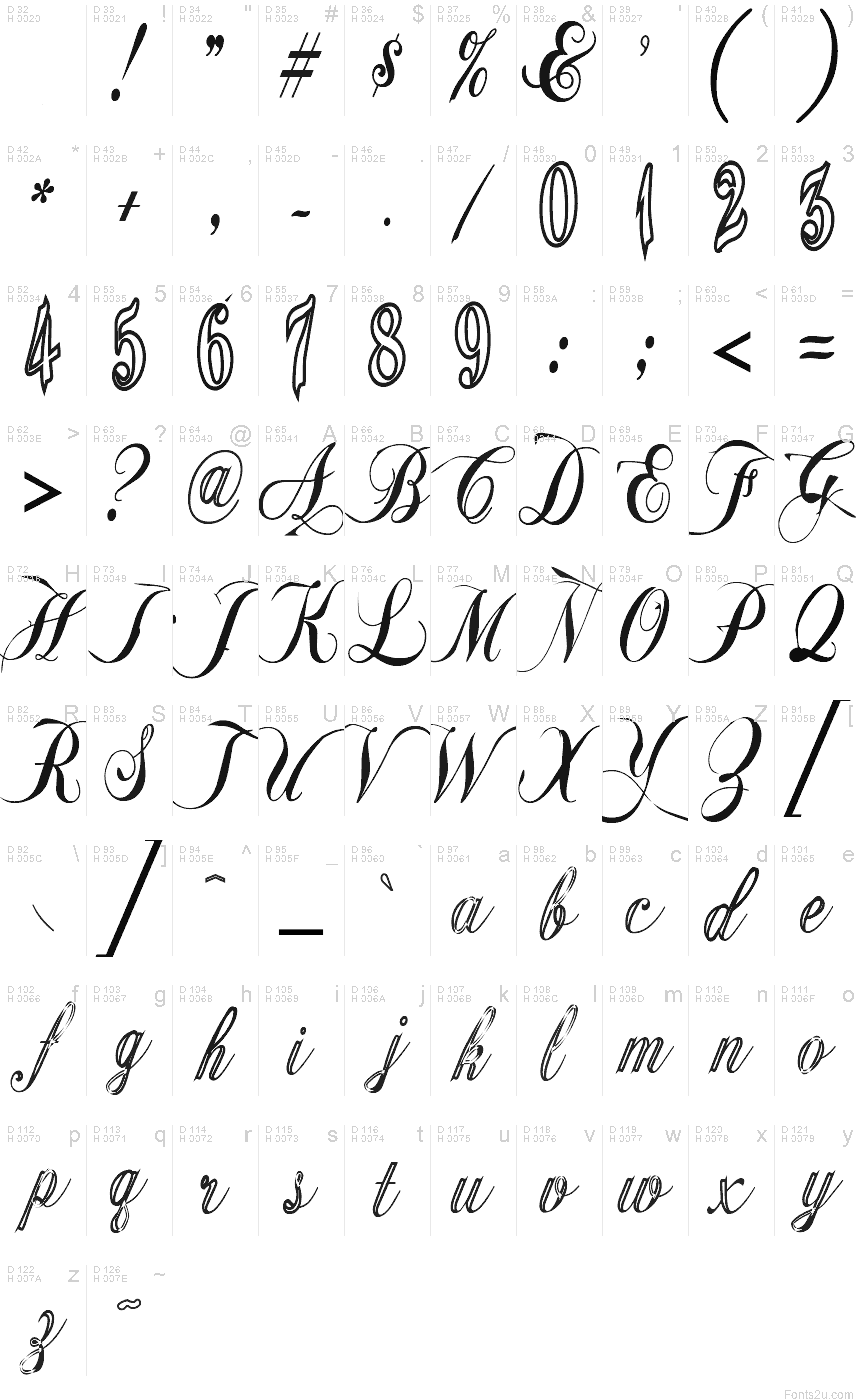 D 32 D 33 ! D 34 " D 35 # D 36 $ D 37 % D 38 & D 39 ' D 40 ( D 41 )
H 0020 H 0021 H 0022 H 0023 H 0024 H 0025 H 0026 H 0027 H 0028 H 0029
! " # $ % & ' ( )
D 42 * D 43 + D 44 , D 45 - D 46 . D 47 / D 48 0 D 49 1 D 50 2 D 51 3
H 002A H 002B H 002C H 002D H 002E H 002F H 0030 H 0031 H 0032 H 0033
* + , - . / 0 1 2 3
D 52 4 D 53 5 D 54 6 D 55 7 D 56 8 D 57 9 D 58 : D 59 ; D 60 < D 61 =
H 0034 H 0035 H 0036 H 0037 H 0038 H 0039 H 003A H 003B H 003C H 003D
4 5 6 7 8 9 : ; < =
D 62 > D 63 ? D 64 @ D 65 A D 66 B D 67 C D 68 D D 69 E D 70 F D 71 G
H 003E H 003F H 0040 H 0041 H 0042 H 0043 H 0044 H 0045 H 0046 H 0047
> ? @ A B C D E F G
D 72 H D 73 I D 74 J D 75 K D 76 L D 77 M D 78 N D 79 O D 80 P D 81 Q
H 0048 H 0049 H 004A H 004B H 004C H 004D H 004E H 004F H 0050 H 0051
H I J K L M N O P Q
D 82 R D 83 S D 84 T D 85 U D 86 V D 87 W D 88 X D 89 Y D 90 Z D 91 [
H 0052 H 0053 H 0054 H 0055 H 0056 H 0057 H 0058 H 0059 H 005A H 005B
R S T U V W X Y Z [
D 92 \ D 93 ] D 94 ^ D 95 _ D 96 ` D 97 a D 98 b D 99 c D 100 d D 101 e
H 005C H 005D H 005E H 005F H 0060 H 0061 H 0062 H 0063 H 0064 H 0065
\ ] ^ _ ` a b c d e
D 102 f D 103 g D 104 h D 105 i D 106 j D 107 k D 108 l D 109 m D 110 n D 111 o
H 0066 H 0067 H 0068 H 0069 H 006A H 006B H 006C H 006D H 006E H 006F
f g h i j k l m n o
D 112 p D 113 q D 114 r D 115 s D 116 t D 117 u D 118 v D 119 w D 120 x D 121 y
H 0070 H 0071 H 0072 H 0073 H 0074 H 0075 H 0076 H 0077 H 0078 H 0079
p q r s t u v w x y
D 122 z D 126 ~
H 007A H 007E
z ~
Fonts2u.com